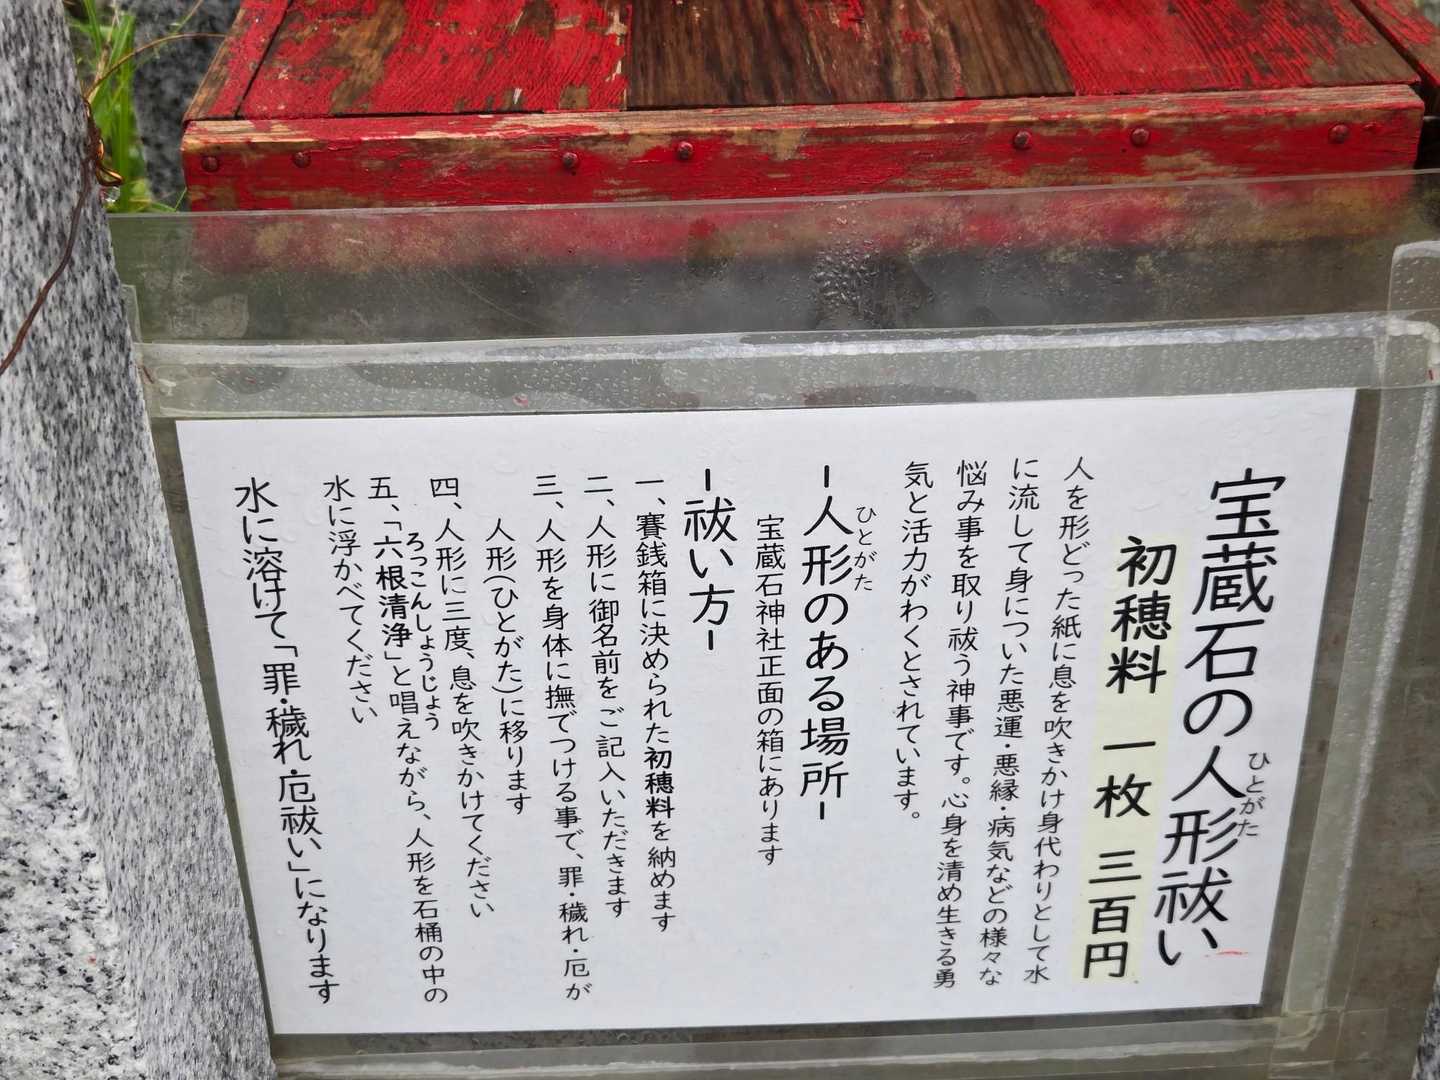 宝蔵石の人形祓い
ひとがた
初穂料 一枚 三百円
人を形どった紙に息を吹きかけ身代わりとして水
に流して身についた悪運・悪縁・病気などの様々な
悩み事を取り祓う神事です。心身を清め生きる勇
気と活力がわくとされています。
-人形のある場所-
ひとがた
宝蔵石神社正面の箱にあります
-祓い方-
一、賽銭箱に決められた初穂料を納めます
二、人形に御名前をご記入いただきます
三、人形を身体に撫でつける事で、罪・穢れ・厄が
人形(ひとがた)に移ります
四、人形に三度、息を吹きかけてください
ろっこんしょうじょう
五、「六根清浄」と唱えながら、人形を石桶の中の
水に浮かべてください
水に溶けて「罪・穢れ・厄祓い」になります